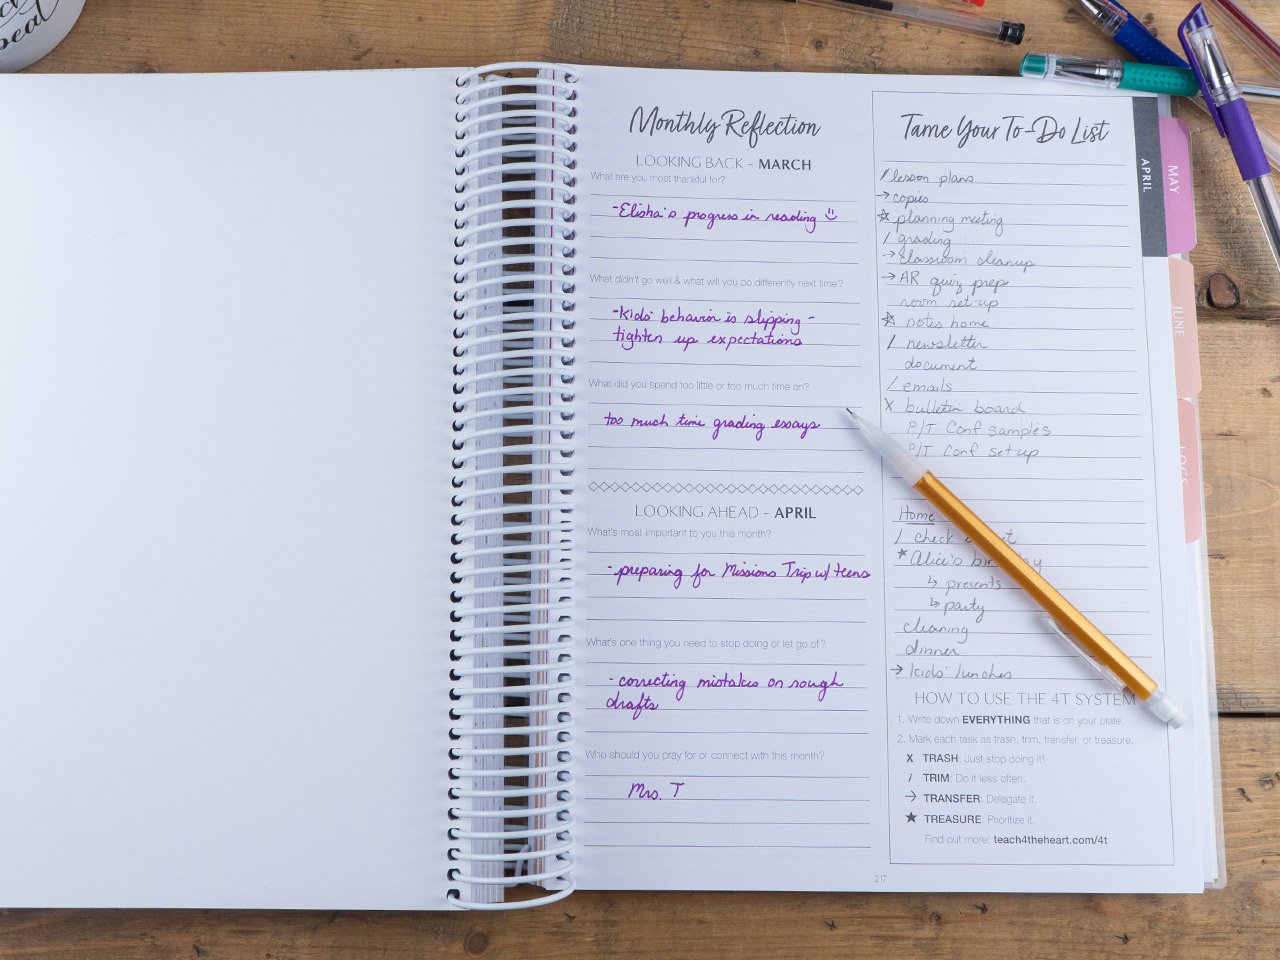 peat
Monthly Reflection
LOOKING BACK - MARCH
What are you most thankful for?
-Elisha's progress in reading
What didn't go well & what will you do differently next time?
-kids' behavior is slipping -
tighten up expectations
What did you spend too little or too much time on?
too much time grading essays
LOOKING AHEAD - APRIL
What's most important to you this month?
- preparing for Missions Trip w/ teens
What's one thing you need to stop doing or let go of?
- correcting mistakes on rough
drafts
Who should you pray for or connect with this month?
Mrs. T
217
Tame Your To-Do List
/ lesson plans
→ copies
☆ planning meeting
/ grading
→ classroom cleanup
→ AR quiz prep
room set-up
☆ notes home
/ newsletter
document
/ emails
X bulletin board
P/T Conf samples
P/T Conf set-up
Home
/ check
* Alice's
↳ presents
↳ party
cleaning
dinner
→ kids' lunches
HOW TO USE THE 4T SYSTEM
1. Write down EVERYTHING that is on your plate.
2. Mark each task as trash, trim, transfer, or treasure.
X TRASH: Just stop doing it!
/ TRIM: Do it less often.
→ TRANSFER: Delegate it.
★ TREASURE: Prioritize it.
Find out more: teach4theheart.com/4t
APRIL
MAY
JUNE
LOGS